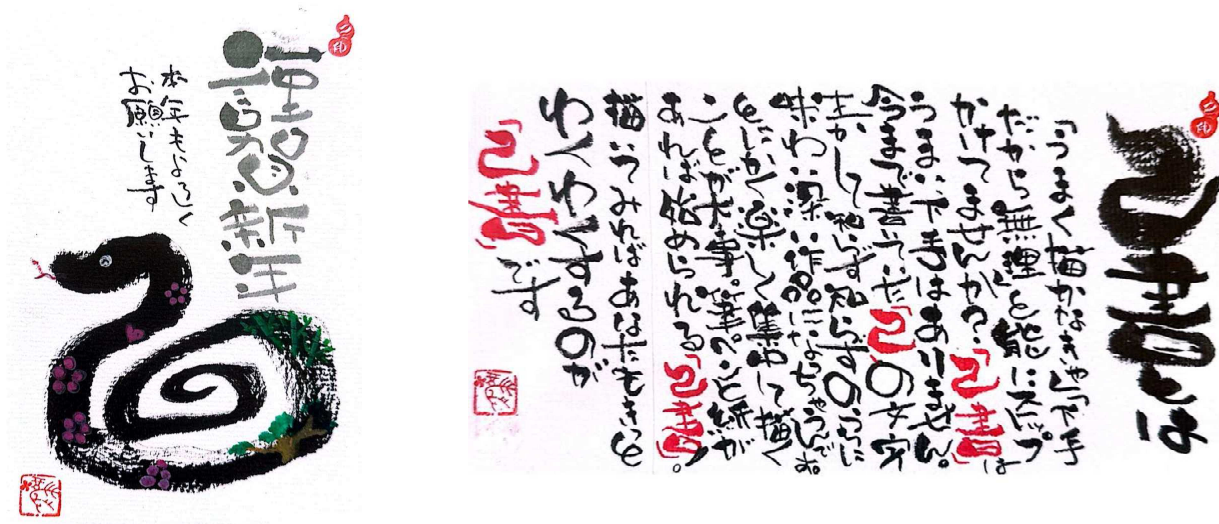 謹賀新年
本年もよろしく
お願いします
己書とは
「うまく描かなきゃ」「下手
だから無理」と能にストップ
かけてませんか？「己書」は
うまい下手はありません。
今まで書いてた「己」の文字
生かして知らず知らずのうちに
味わい深い作品になっちゃうんです。
とにかく楽しく集中して描く
ことが大事。筆ペンと紙が
あれば始められる「己書」。
描いてみればあなたもきっと
わくわくするのが
「己書」です